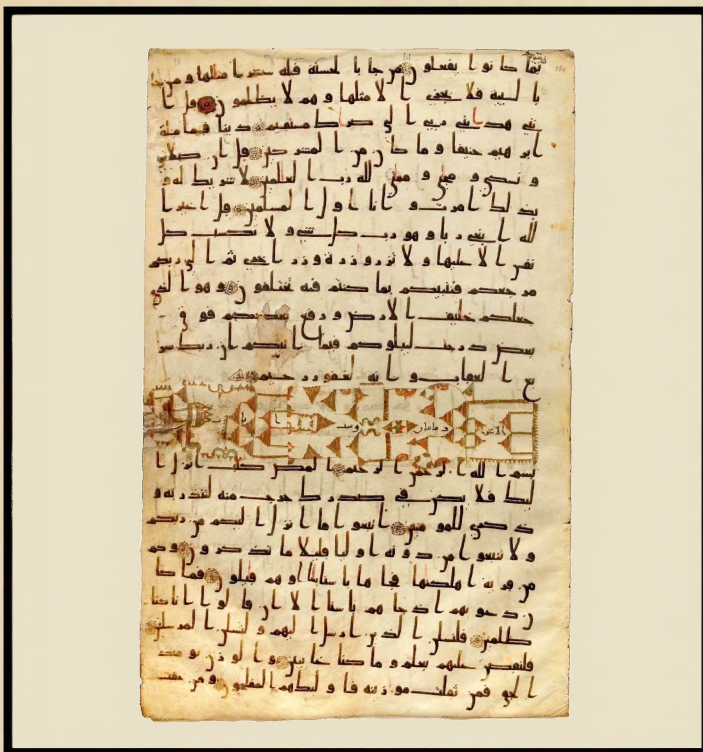 بما كانوا يفعلون من جا بالحسنة فله عشر امثلها ومن جا
بالسيئة فلا يجزى الا مثلها وهم لا يظلمون قل ا
نني هديني ربي الى صراط مستقيم دينا قيما ملة
ابرهيم حنيفا وما كان من المشركين قل ان صلاتي
ونسكي ومحياي ومماتي لله رب العلمين لا شريك له و
بذلك امرت وانا اول المسلمين قل اغير ا
لله ابغي ربا وهو رب كل شي ولا تكسب كل
نفس الا عليها ولا تزر وازرة وزر اخرى ثم الى ربكم
مرجعكم فينبئكم بما كنتم فيه تختلفون وهو الذي
جعلكم خليف الارض ورفع بعضكم فوق
بعض درجت ليبلوكم فيما اتيكم ان ربك سر
يع العقاب وانه لغفور رحيم
الاعراف مايتان وست ايات
بسم الله الرحمن الرحيم المص كتب انزل ا
ليك فلا يكن في صدرك حرج منه لتنذر به و
ذكرى للمومنين اتبعوا ما انزل اليكم من ربكم
ولا تتبعوا من دونه اوليا قليلا ما تذكرون وكم
من قرية اهلكنها فجاها باسنا بيتا او هم قيلون فما كا
ن دعويهم اذ جاهم باسنا الا ان قالوا انا كنا
ظلمين فلنسلن الذين ارسل اليهم ولنسلن المرسلين
فلنقصن عليهم بعلم وما كنا غايبين والوزن يومئذ
الحق فمن ثقلت موزينه فاوليك هم المفلحون ومن خفت